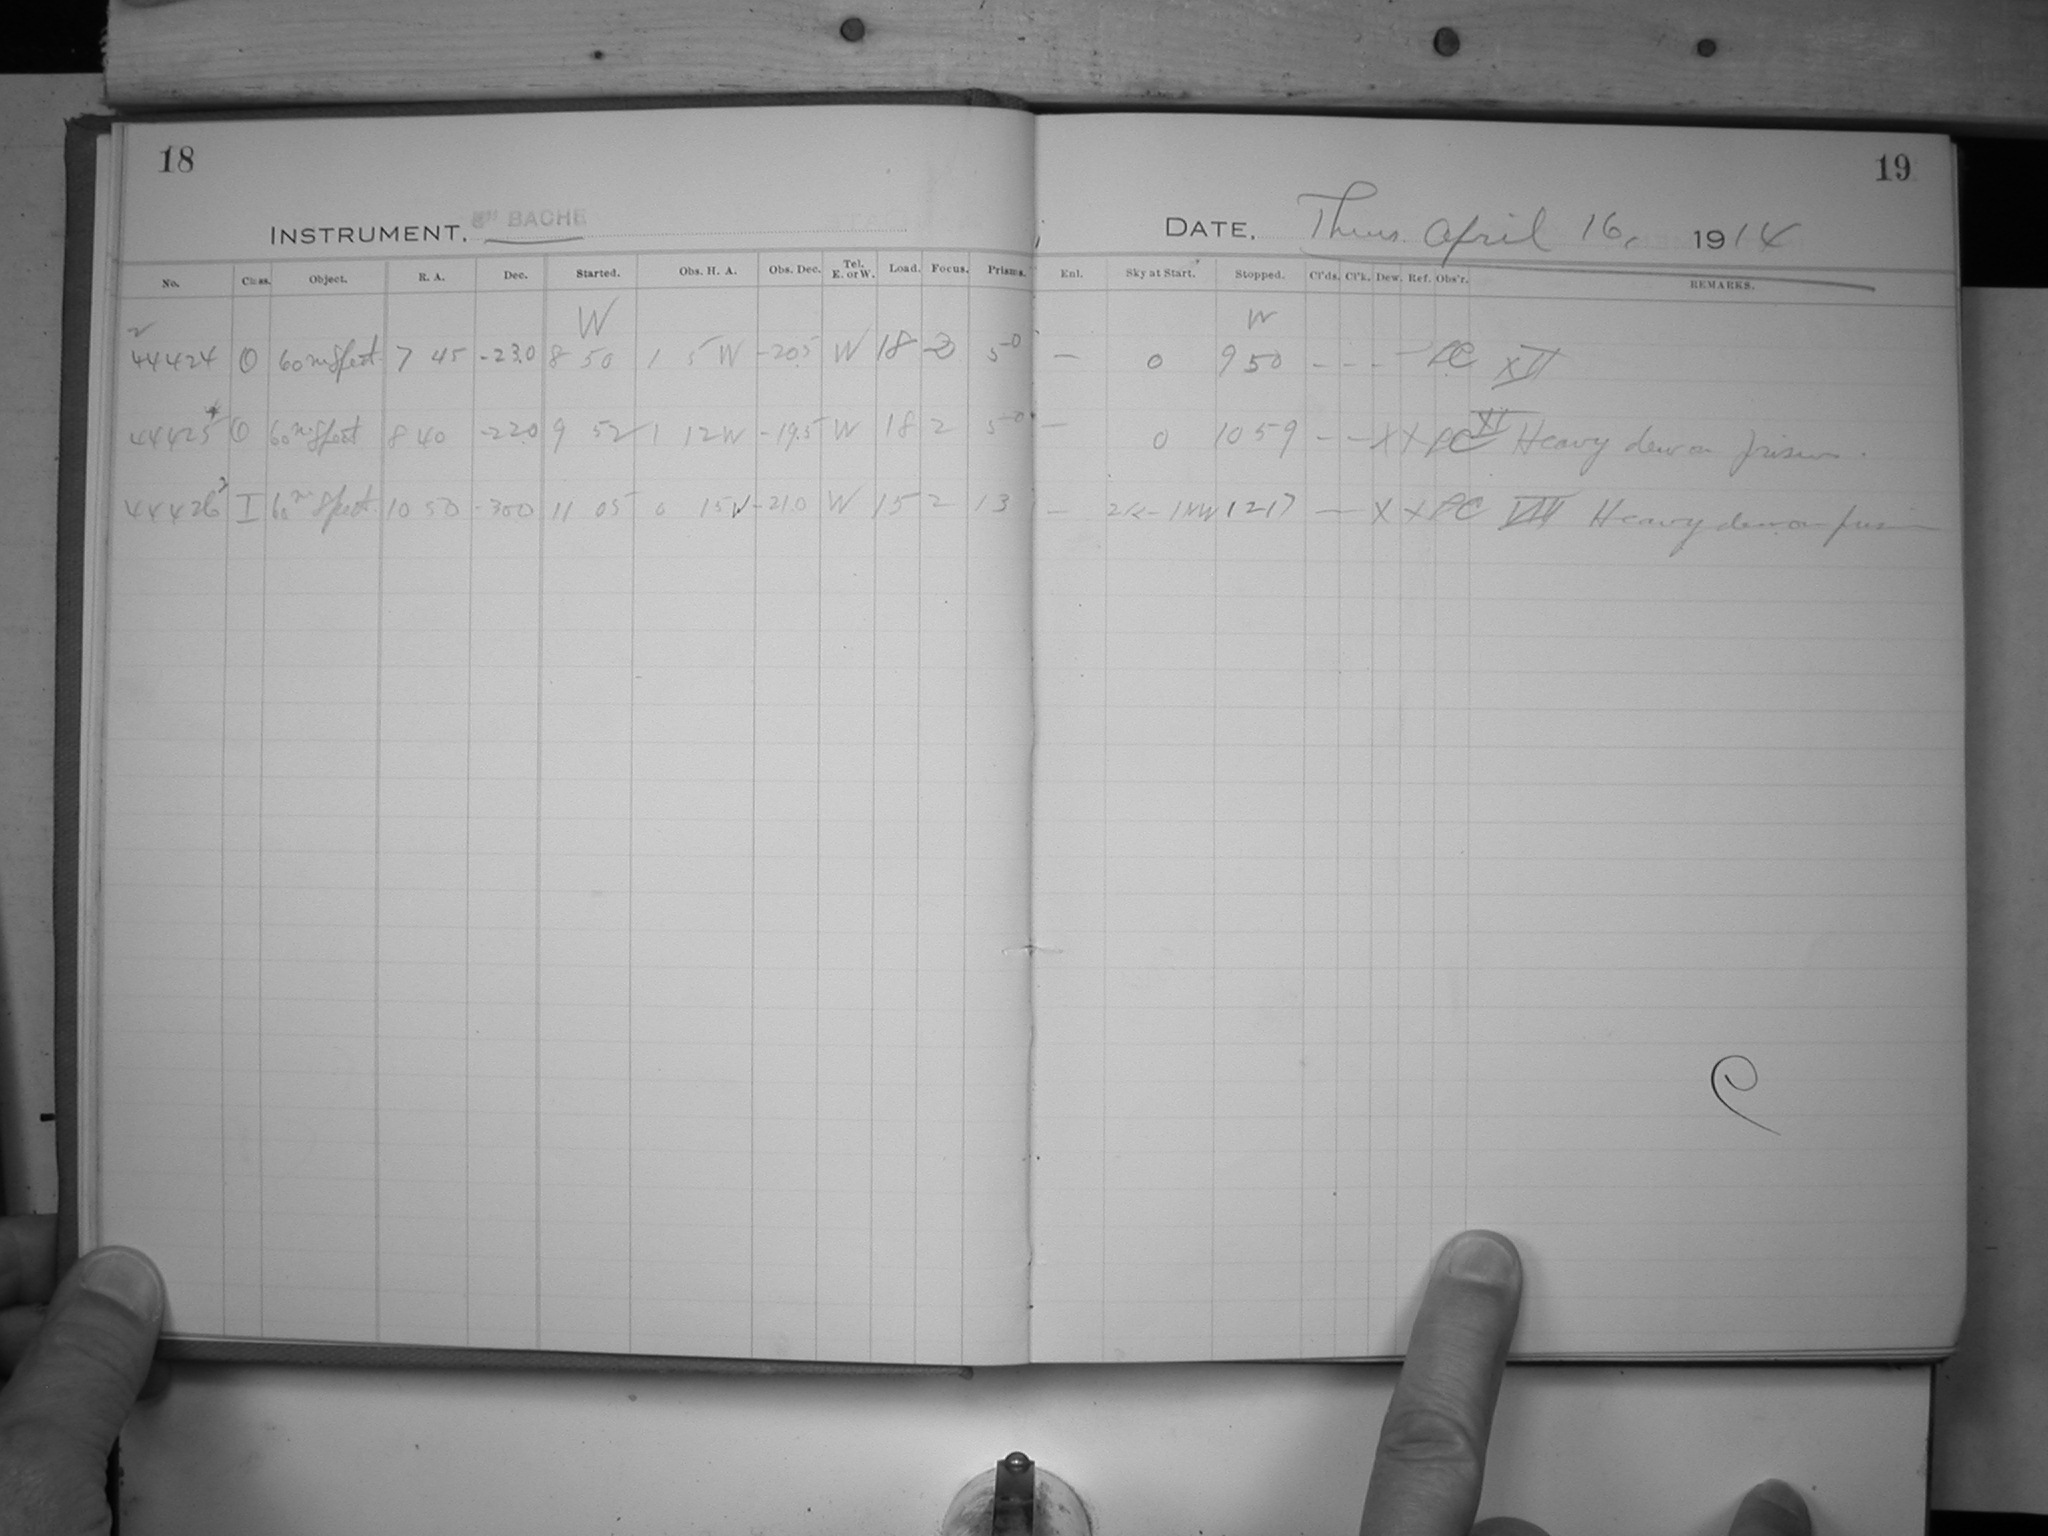 18
19
INSTRUMENT. 8" BACHE
DATE. Thurs. April 16, 1914
No. Class. Object. R. A. Dec. Started. Obs. H. A. Obs. Dec. Tel. E. or W. Load. Focus. Prisms. Enl. Sky at Start. Stopped. Cl'ds. Cl'k. Dew. Ref. Obs'r. REMARKS.
W W
44424 O 60m Spect. 7 45 -23.0 8 50 1 5 W -20.5 W 18 2 5-0 — 0 9 50 - - - - LC XII
44425 O 60m Spect 8 40 -22.0 9 52 1 12 W -19.5 W 18 2 5-0 — 0 10 59 - - X X LC XI Heavy dew on prism.
44426 I 60m Spect. 10 50 -30.0 11 05 0 15 W -21.0 W 15 2 13 — 12 17 — X X LC VIII Heavy dew on prism